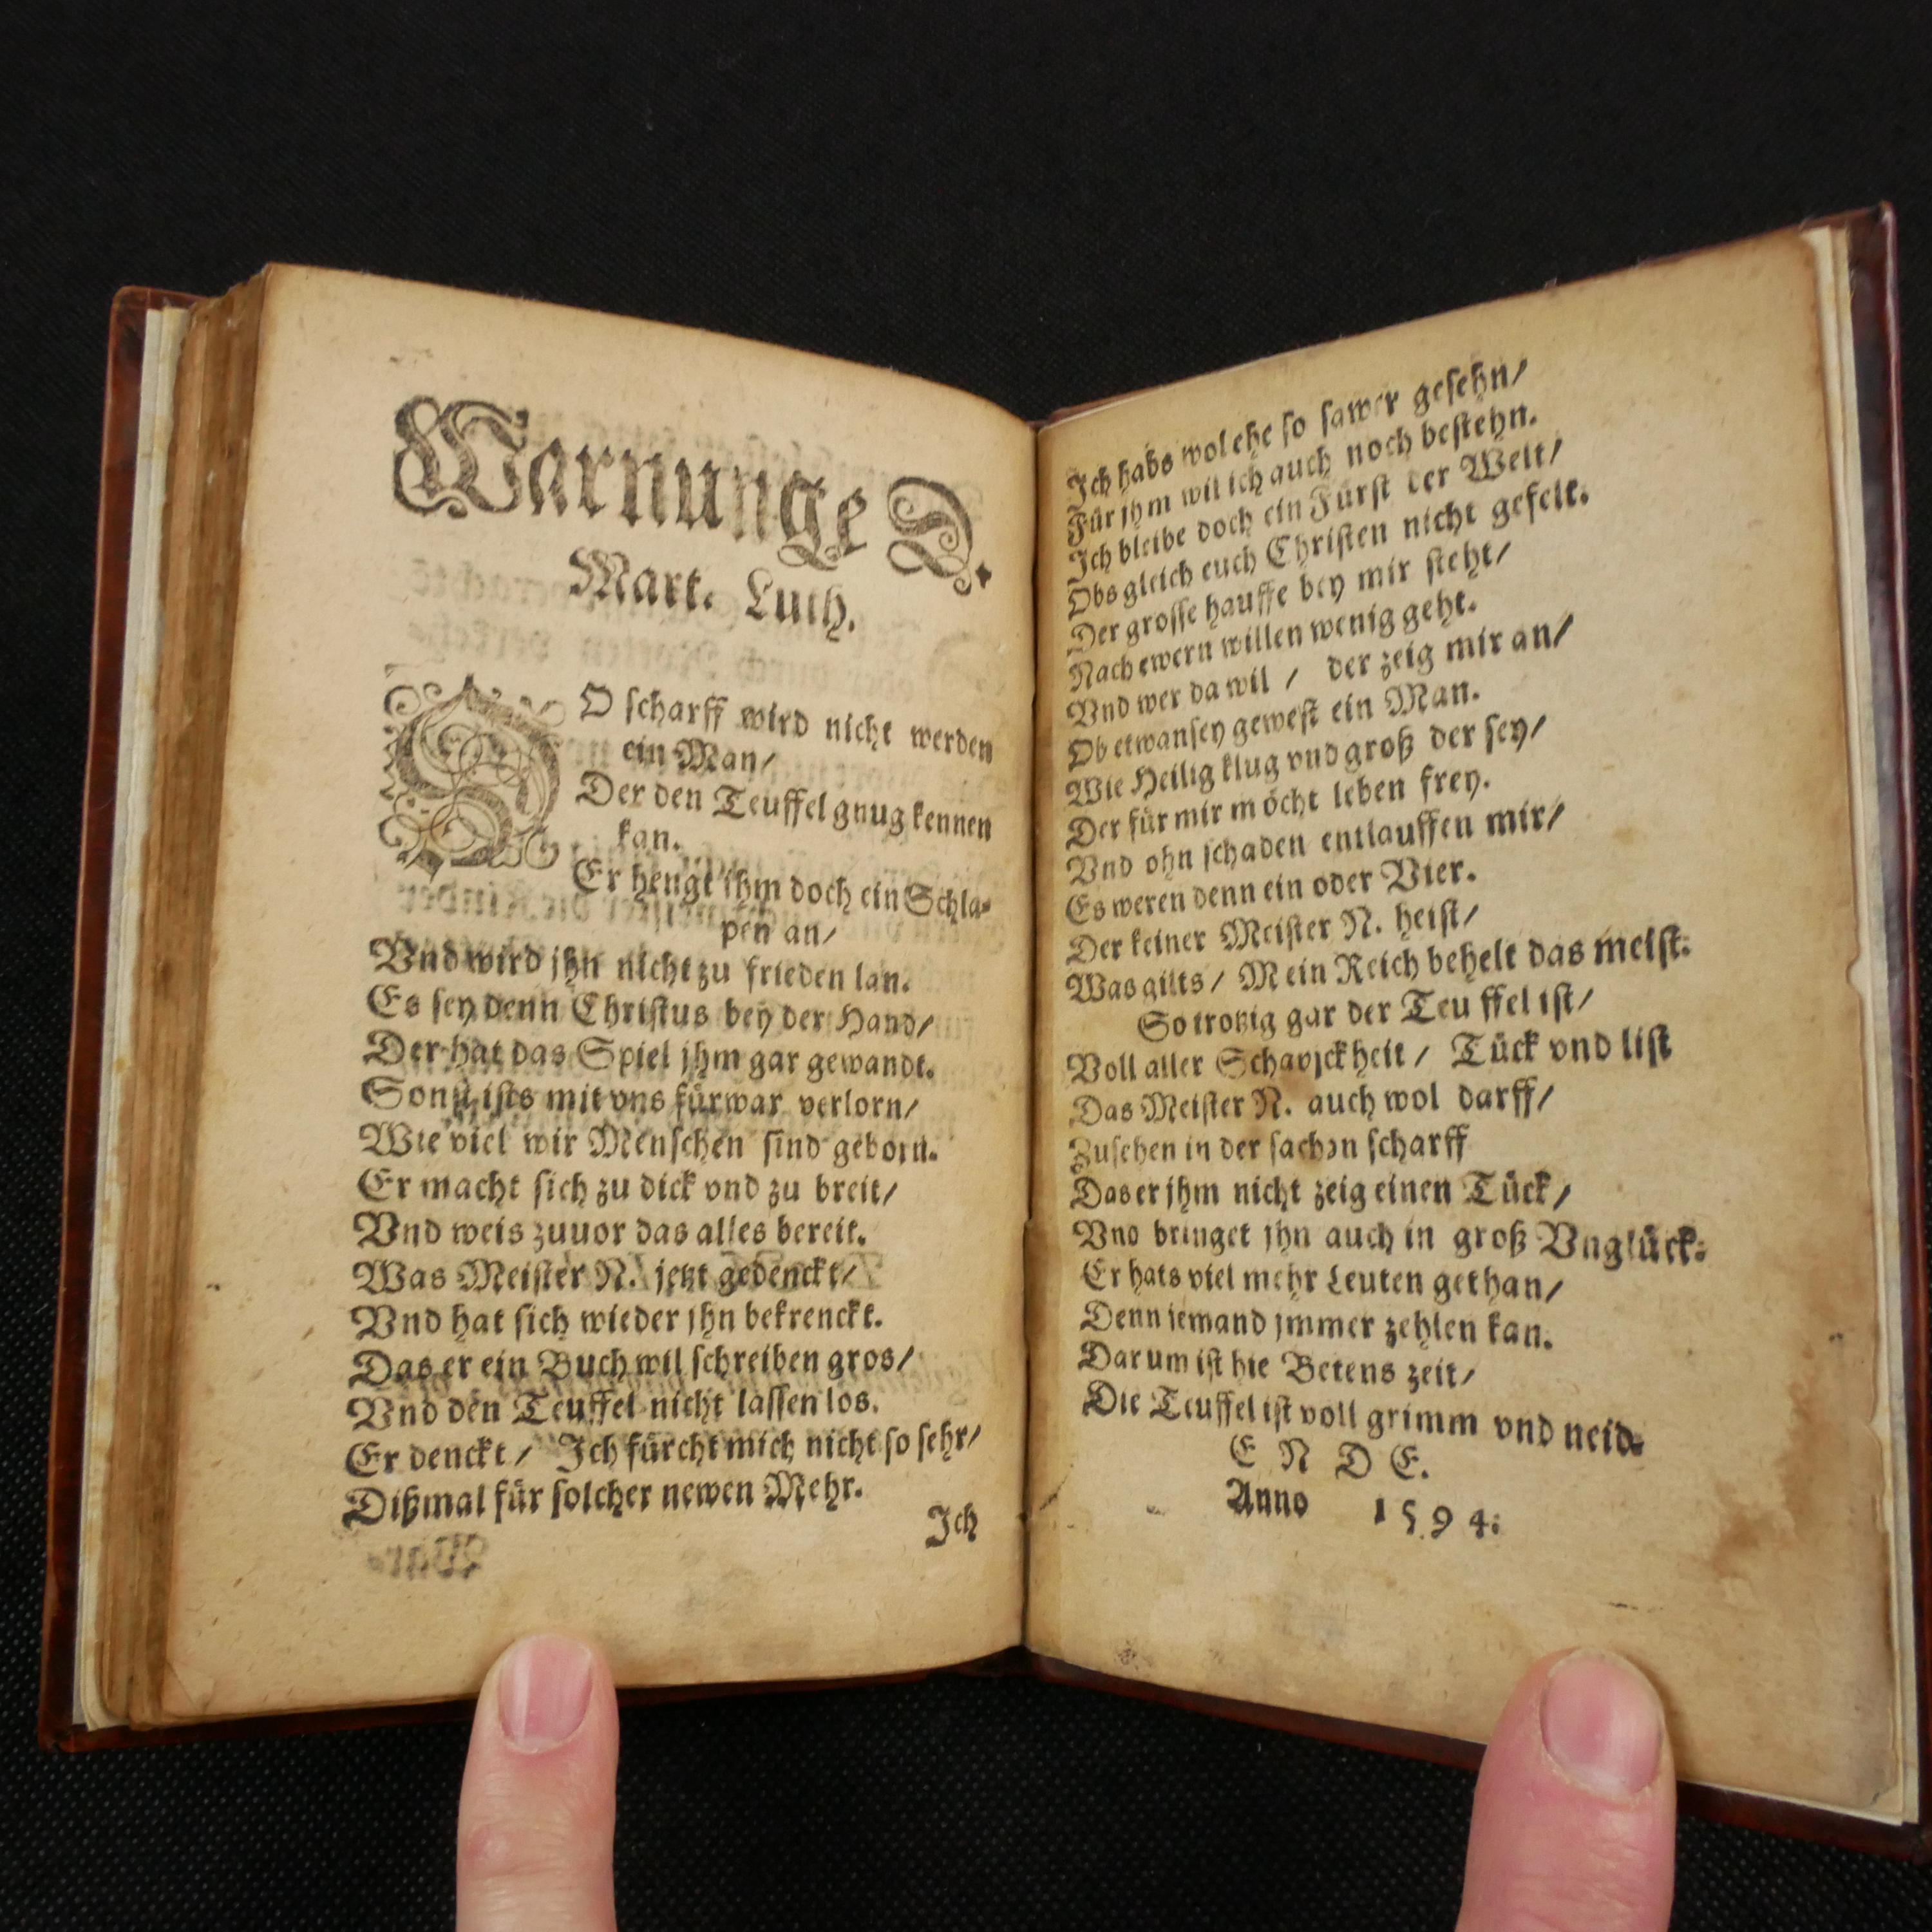 Warnunge D.
Mart. Luth.
SO scharff wird nicht werden
ein Man/
Der den Teuffel gnug kennen
kan.
Er hengt ihm doch ein Schla-
pen an/
Vnd wird jhn nicht zu frieden lan.
Es sey denn Christus bey der Hand/
Der hat das Spiel jhm gar gewandt.
Sonst ists mit vns fürwar verlorn/
Wie viel wir Menschen sind geborn.
Er macht sich zu dick vnd zu breit/
Vnd weis zuuor das alles bereit.
Was Meister N. jetzt gedenckt/
Vnd hat sich wieder jhn bekrenckt.
Das er ein Buch wil schreiben gros/
Vnd den Teuffel nicht lassen los.
Er denckt/ Ich fürcht mich nicht so sehr/
Dißmal für solcher newen Mehr.
Ich
Ich habs wol ehe so sawer gesehn/
Für jhm wil ich auch noch bestehn.
Ich bleibe doch ein Fürst der Welt/
Obs gleich euch Christen nicht gefelt.
Der grosse hauffe bey mir steht/
Nach ewern willen wenig geht.
Vnd wer da wil / der zeig mir an/
Ob etwan sey gewest ein Man.
Wie Heilig klug vnd groß der sey/
Der für mir möcht leben frey.
Vnd ohn schaden entlauffen mir/
Es weren denn ein oder Vier.
Der keiner Meister N. heist/
Was gilts/ Mein Reich behelt das meist.
So trotzig gar der Teuffel ist/
Voll aller Schavjckheit / Tück vnd list
Das Meister N. auch wol darff/
Zusehen in der sachen scharff
Das er jhm nicht zeig einen Tück/
Vnd bringet jhn auch in groß Vnglück.
Er hats viel mehr Leuten gethan/
Denn jemand jmmer zehlen kan.
Darum ist hie Betens zeit/
Die Teuffel ist voll grimm vnd neid.
E N D E.
Anno 1594.